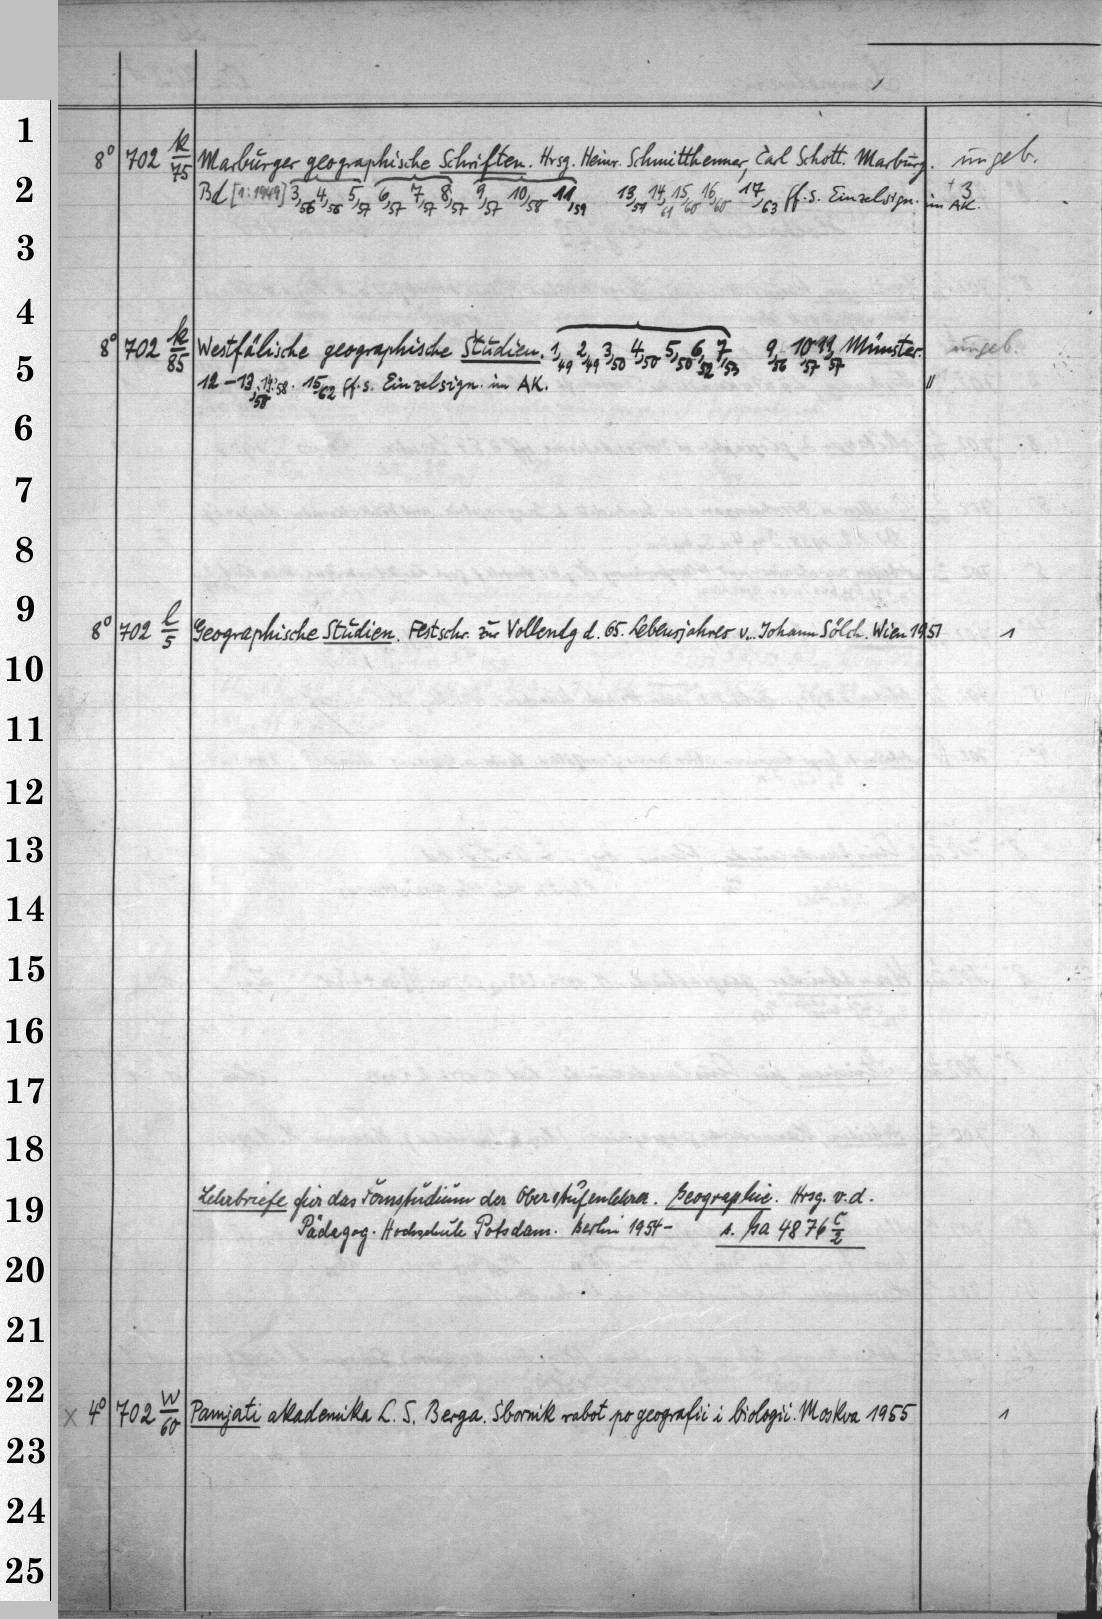 1
8° 702 k/75 Marburger geographische Schriften. Hrsg. Heinr. Schmitthenner, Carl Schott. Marburg. ungeb.
2
Bd [1:1949] 3,56 4,56 5,57 6,57 7,57 8,57 9,57 10,58 11,59 13,59 14,61 15,60 16,60 17,63 ff. s. Einzelsign. im AK. + 3
3
4
8° 702 k/85 Westfälische geographische Studien. 1,49 2,49 3,50 4,50 5,50 6,52 7,53 9,56 10,57 11,57 Münster. ungeb.
5
12–13,58 14,58. 15,62 ff. s. Einzelsign. im AK. "
6
7
8
9
8° 702 l/5 Geographische Studien. Festschr. zur Vollendg d. 65. Lebensjahres v. Johann Sölch. Wien 1951 1
10
11
12
13
14
15
16
17
18
19
Lehrbriefe für das Fernstudium der Oberstufenlehrer. Geographie. Hrsg. v. d.
Pädagog. Hochschule Potsdam. Berlin 1954– s. Ga 4876 c/2
20
21
22
x 4° 702 w/60 Pamjati akademika L. S. Berga. Sbornik rabot po geografii i biologii. Moskva 1955 1
23
24
25